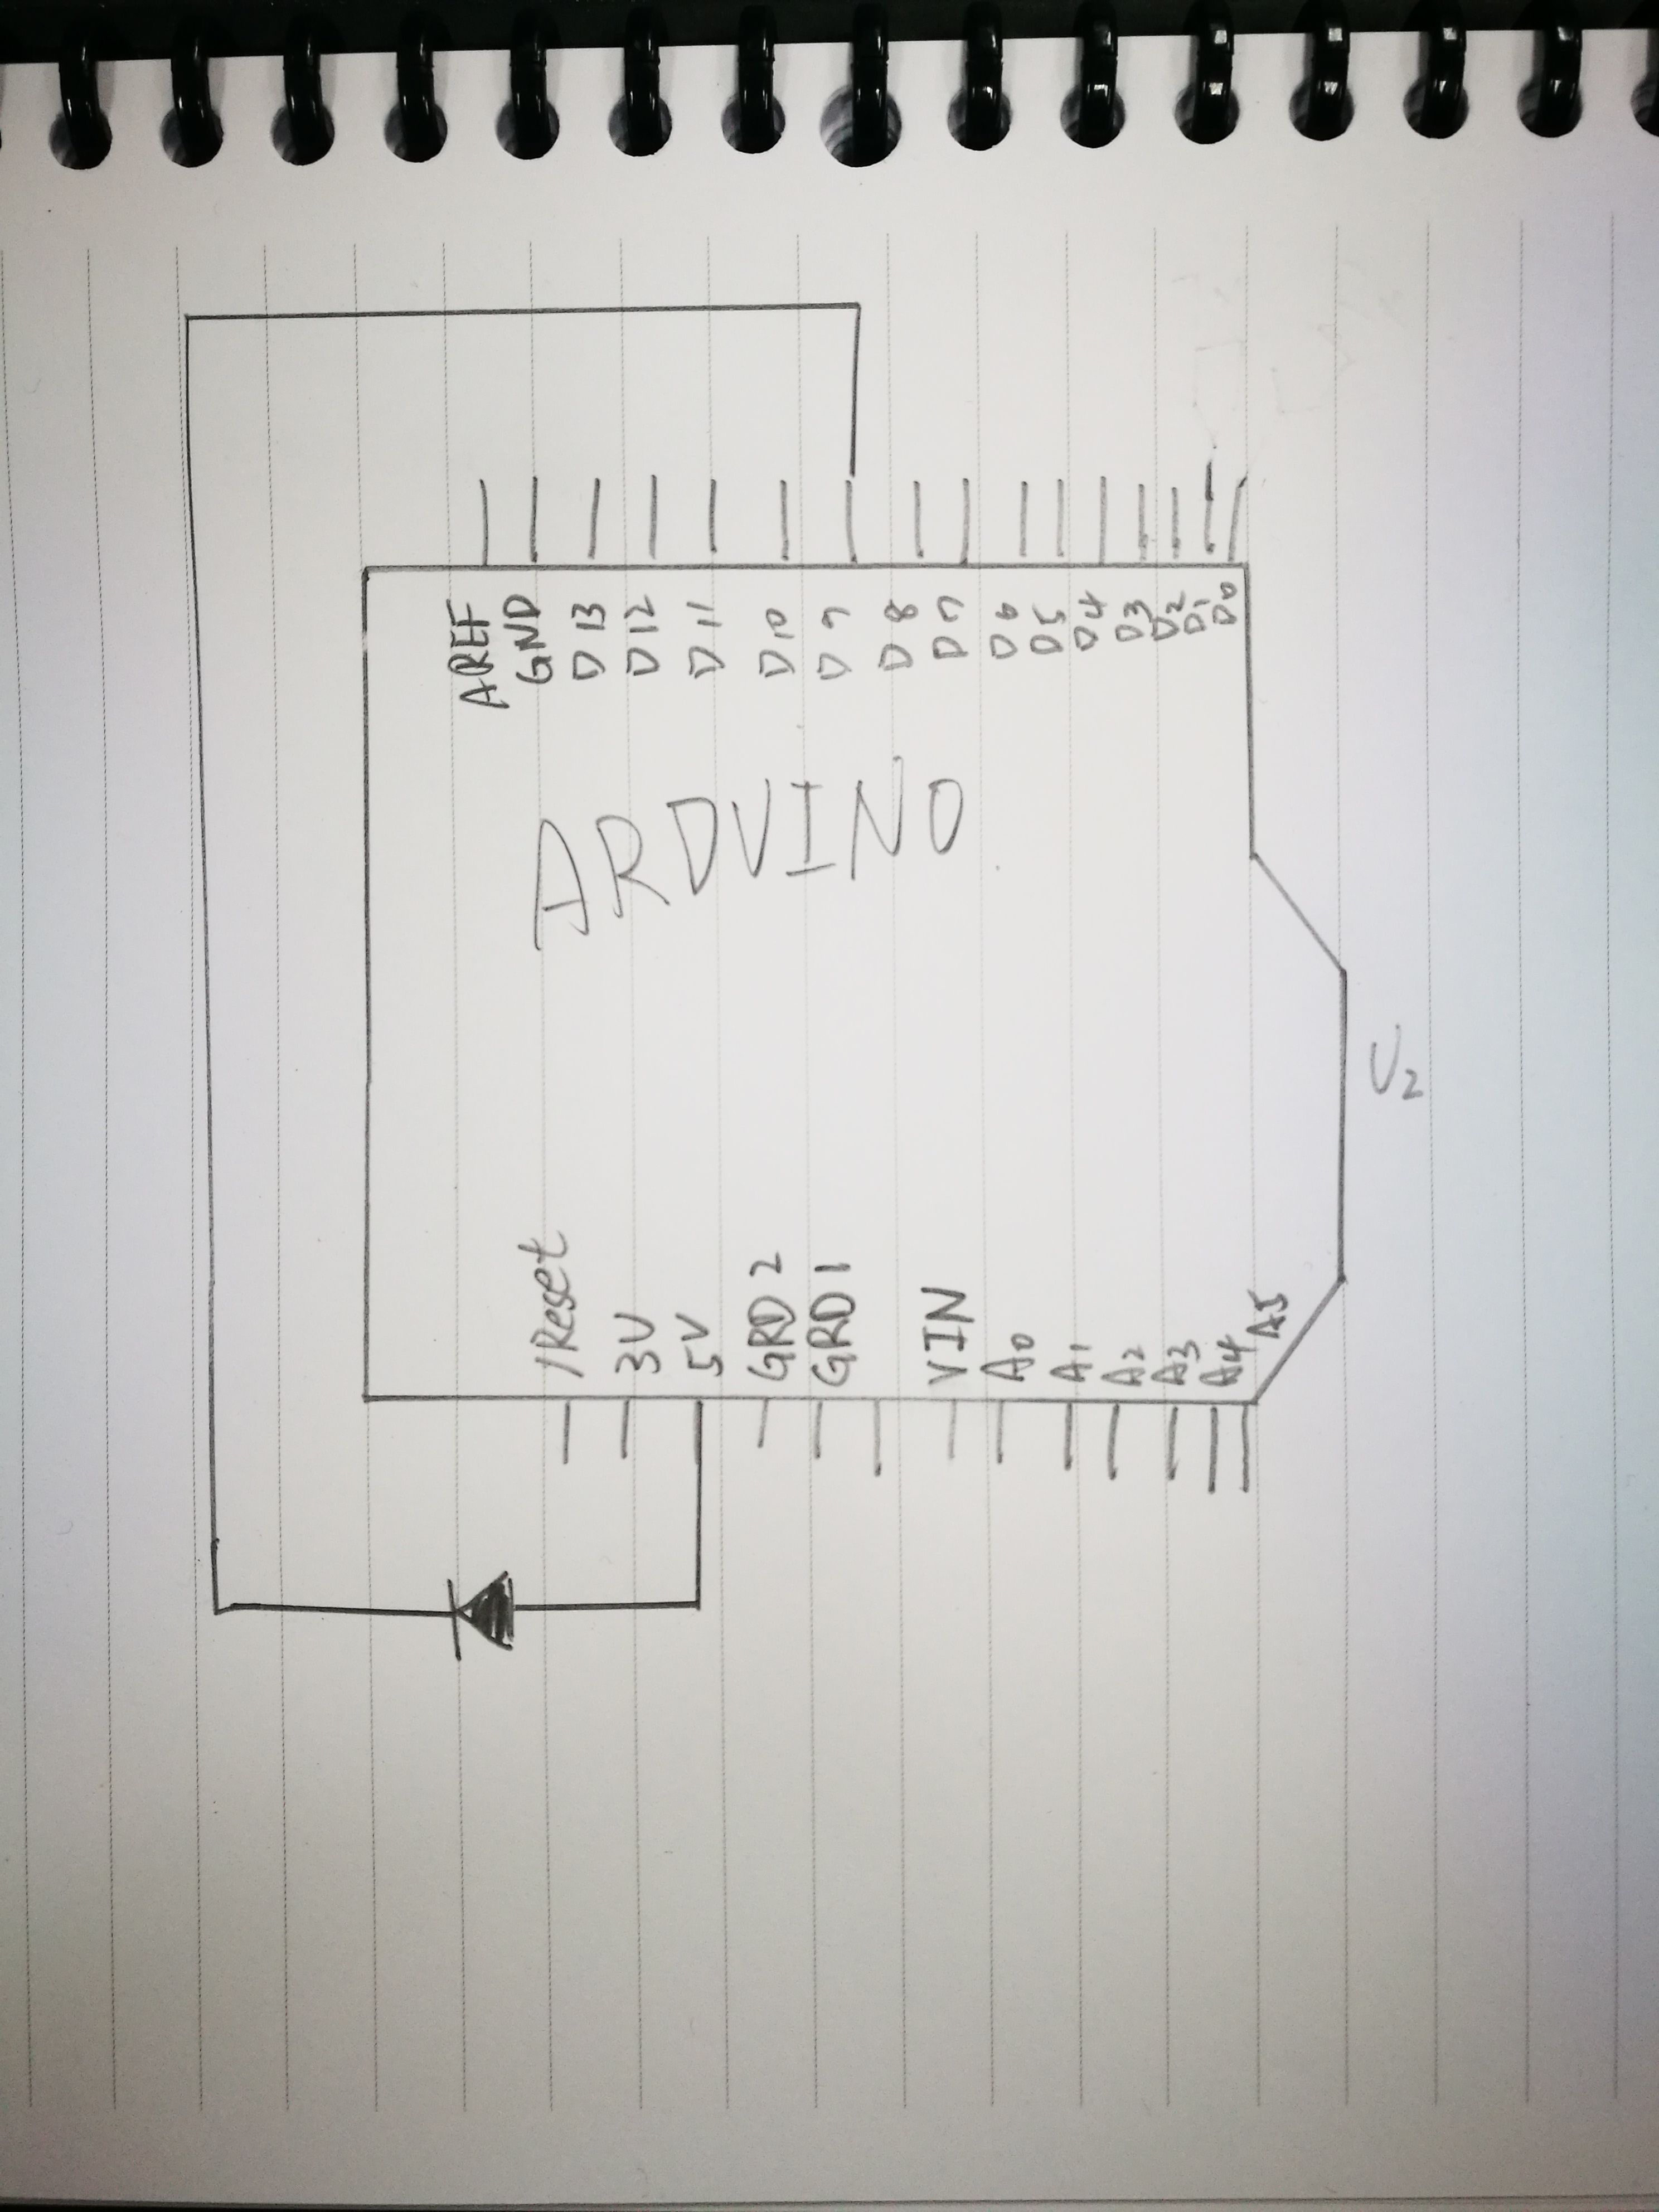 AREF
GND
D13
D12
D11
D10
D9
D8
D7
D6
D5
D4
D3
D2
D1
D0
ARDUINO
U2
/Reset
3V
5V
GRD 2
GRD 1
VIN
A0
A1
A2
A3
A4
A5